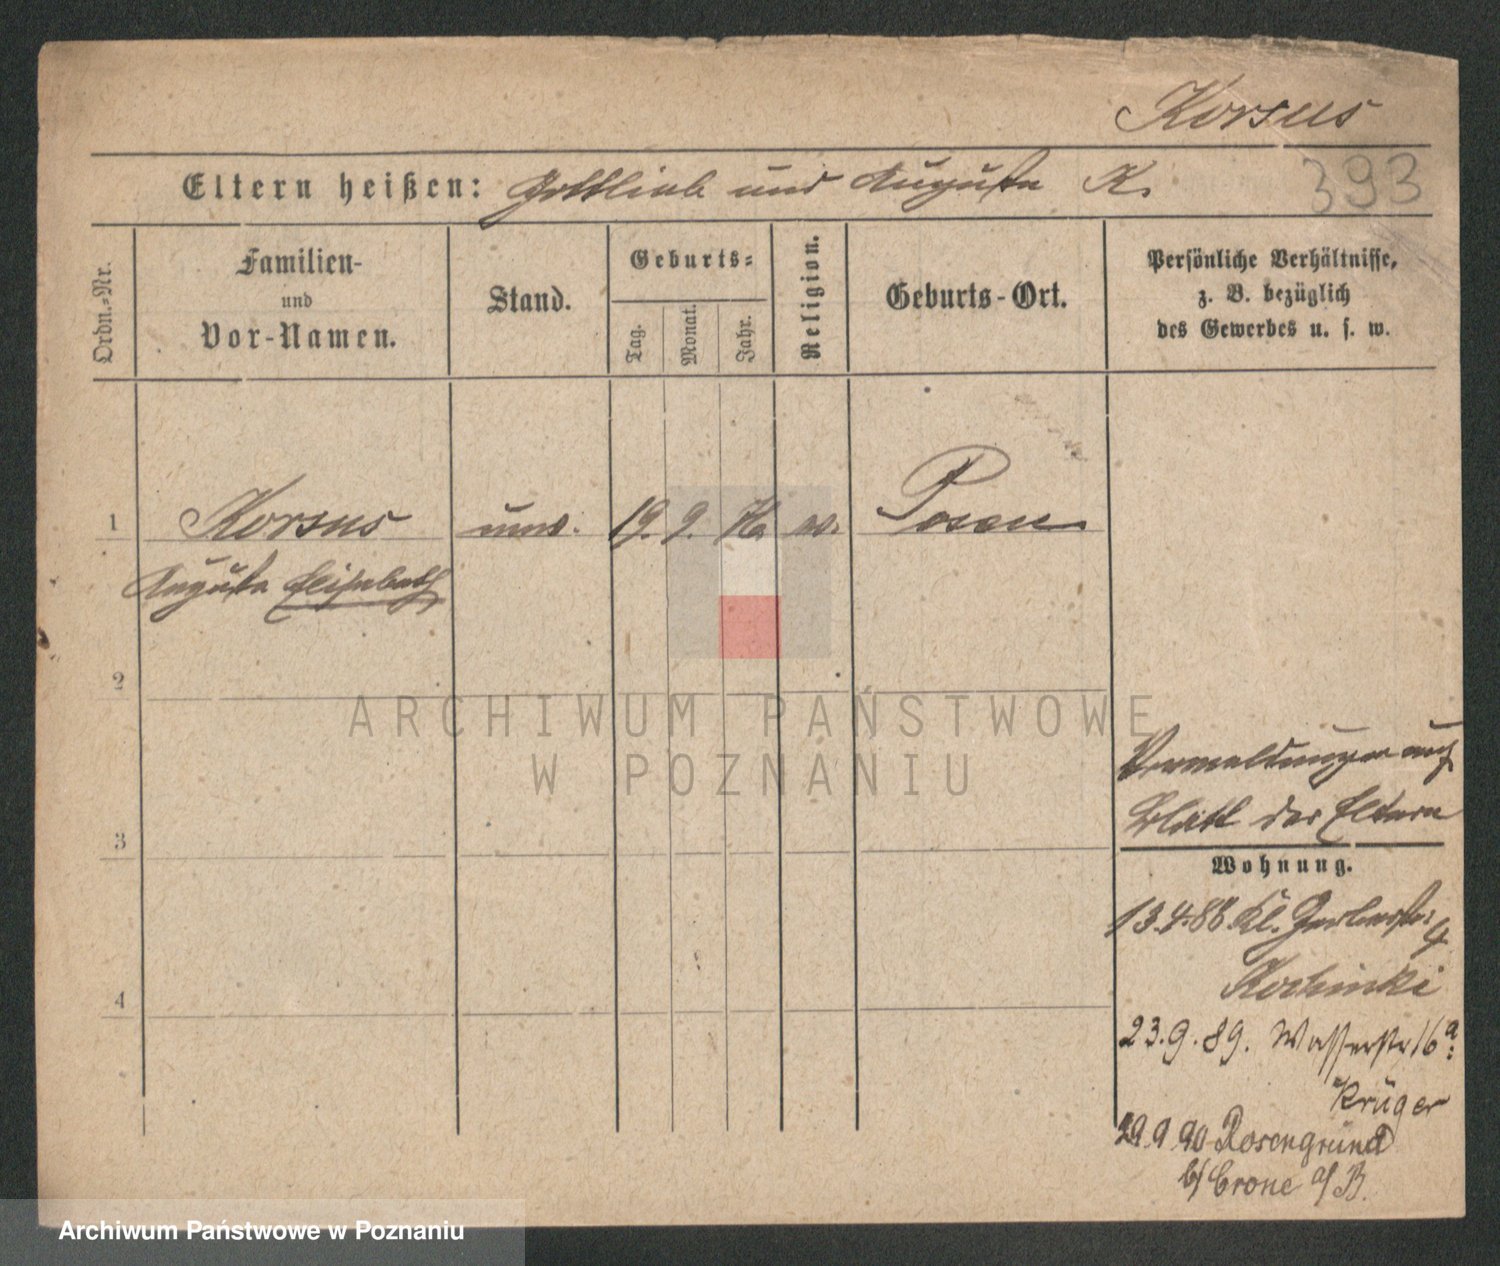 Korsus
Eltern heißen: Gottlieb und Auguste K.
393
Ordn.-Nr.
Familien-
und
Vor-Namen.
Stand.
Geburts-
Tag.
Monat.
Jahr.
Religion.
Geburts-Ort.
Persönliche Verhältnisse,
z. B. bezüglich
des Gewerbes u. s. w.
1 Korsus unv. 19. 9. 76. ev. Posen
Auguste Elisabeth
2
ARCHIWUM PAŃSTWOWE
W POZNANIU
3
4
Vermeldungen auf
Blatt der Eltern
Wohnung.
13.4.88 Kl. Gerberstr. 4
23.9.89. Wasserstr 16a:
Krüger
29.9.90 Rosengrund
b/ Crone a/B.
Archiwum Państwowe w Poznaniu